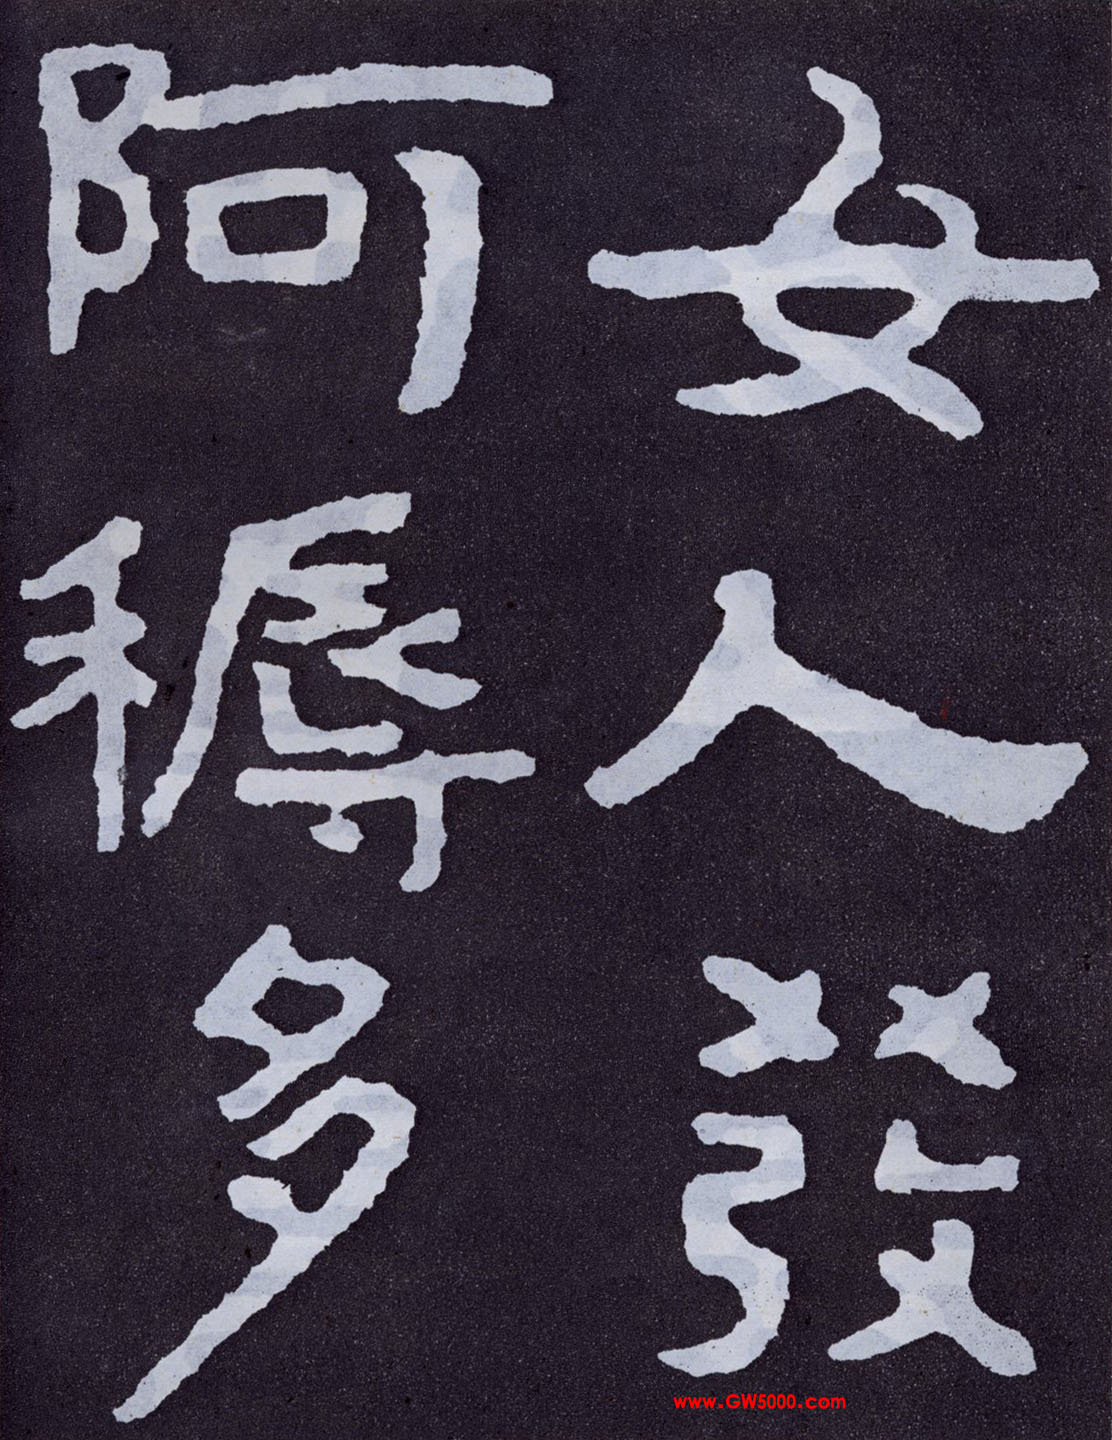 女人發
阿耨多
www.GW5000.com